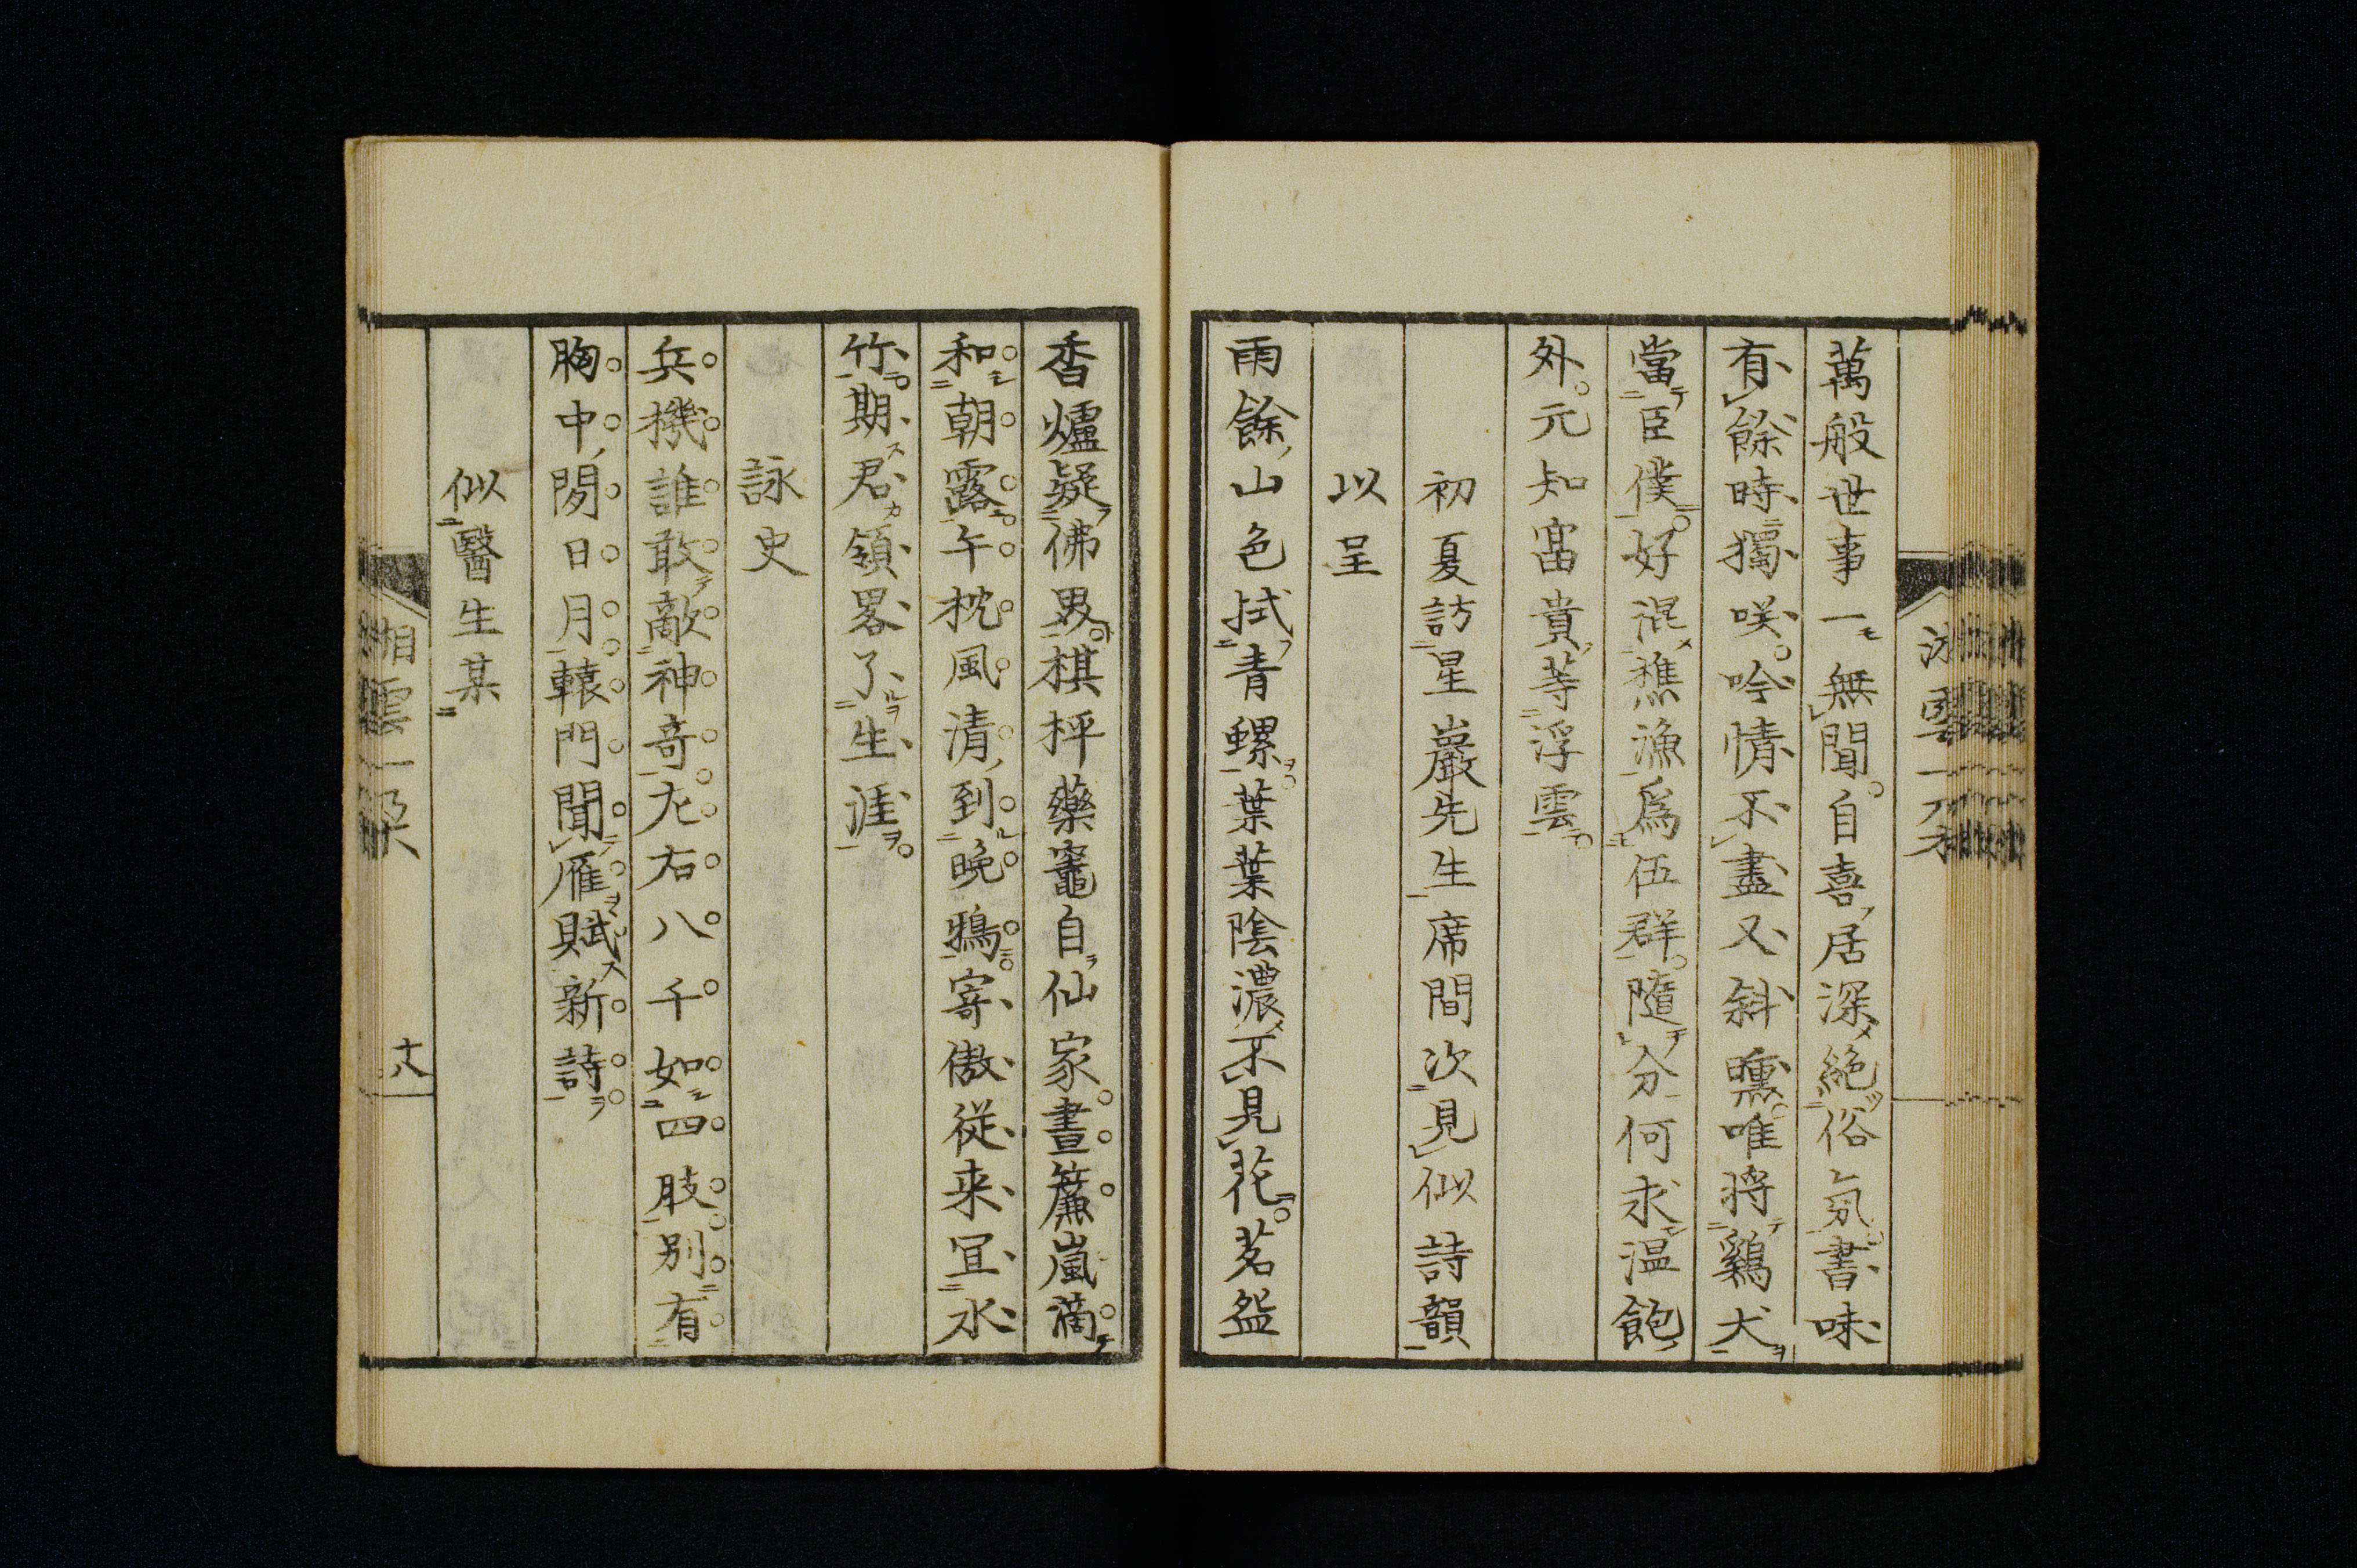 萬般世事一無聞自喜居深絕俗氛書味
有餘時獨咲吟情不盡又斜曛唯將鷄犬
當臣僕好混樵漁為伍群隨分何求温飽
外元知富貴等浮雲
初夏訪星巖先生席間次見似詩韻
以呈
雨餘山色拭青螺葉葉陰濃不見花茗盌
香爐疑佛界棋枰藥竈自仙家晝簾嵐滴
和朝露午枕風清到晚鴉寄傲從来宜水
竹期君領畧了生涯
詠史
兵機誰敢敵神奇左右八千如四肢別有
胸中閑日月轅門聞雁賦新詩
似醫生某
湘雲一朶
十八